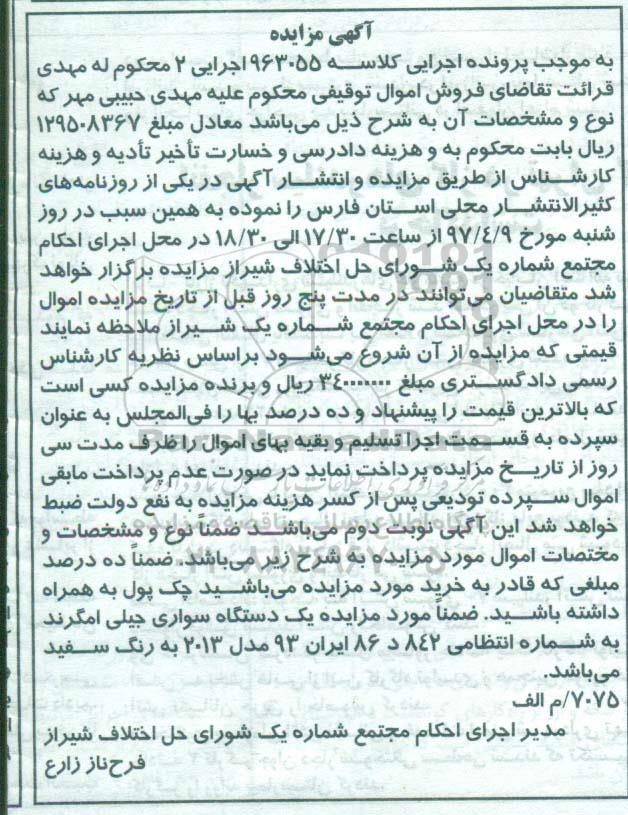 آگهی مزایده
به موجب پرونده اجرایی کلاسه ۹۶۳۰۵۵ اجرایی ۲ محکوم له مهدی
قرائت تقاضای فروش اموال توقیفی محکوم علیه مهدی حبیبی مهر که
نوع و مشخصات آن به شرح ذیل می‌باشد معادل مبلغ ۱۲۹۵۰۸۳۶۷
ریال بابت محکوم به و هزینه دادرسی و خسارت تأخیر تأدیه و هزینه
کارشناس از طریق مزایده و انتشار آگهی در یکی از روزنامه‌های
کثیرالانتشار محلی استان فارس را نموده به همین سبب در روز
شنبه مورخ ۹۷/٤/۹ از ساعت ۱۷/۳۰ الی ۱۸/۳۰ در محل اجرای احکام
مجتمع شماره یک شورای حل اختلاف شیراز مزایده برگزار خواهد
شد متقاضیان می‌توانند در مدت پنج روز قبل از تاریخ مزایده اموال
را در محل اجرای احکام مجتمع شماره یک شیراز ملاحظه نمایند
قیمتی که مزایده از آن شروع می‌شود براساس نظریه کارشناس
رسمی دادگستری مبلغ ۳٤۰۰۰۰۰۰۰ ریال و برنده مزایده کسی است
که بالاترین قیمت را پیشنهاد و ده درصد بها را فی‌المجلس به عنوان
سپرده به قسمت اجرا تسلیم و بقیه بهای اموال را ظرف مدت سی
روز از تاریخ مزایده پرداخت نماید در صورت عدم پرداخت مابقی
اموال سپرده تودیعی پس از کسر هزینه مزایده به نفع دولت ضبط
خواهد شد این آگهی نوبت دوم می‌باشد ضمناً نوع و مشخصات و
مختصات اموال مورد مزایده به شرح زیر می‌باشد. ضمناً ده درصد
مبلغی که قادر به خرید مورد مزایده می‌باشید چک پول به همراه
داشته باشید. ضمناً مورد مزایده یک دستگاه سواری جیلی امگرند
به شماره انتظامی ۸٤۲ د ۸۶ ایران ۹۳ مدل ۲۰۱۳ به رنگ سفید
می‌باشد.
۷۰۷۵/م الف
مدیر اجرای احکام مجتمع شماره یک شورای حل اختلاف شیراز
فرح‌ناز زارع